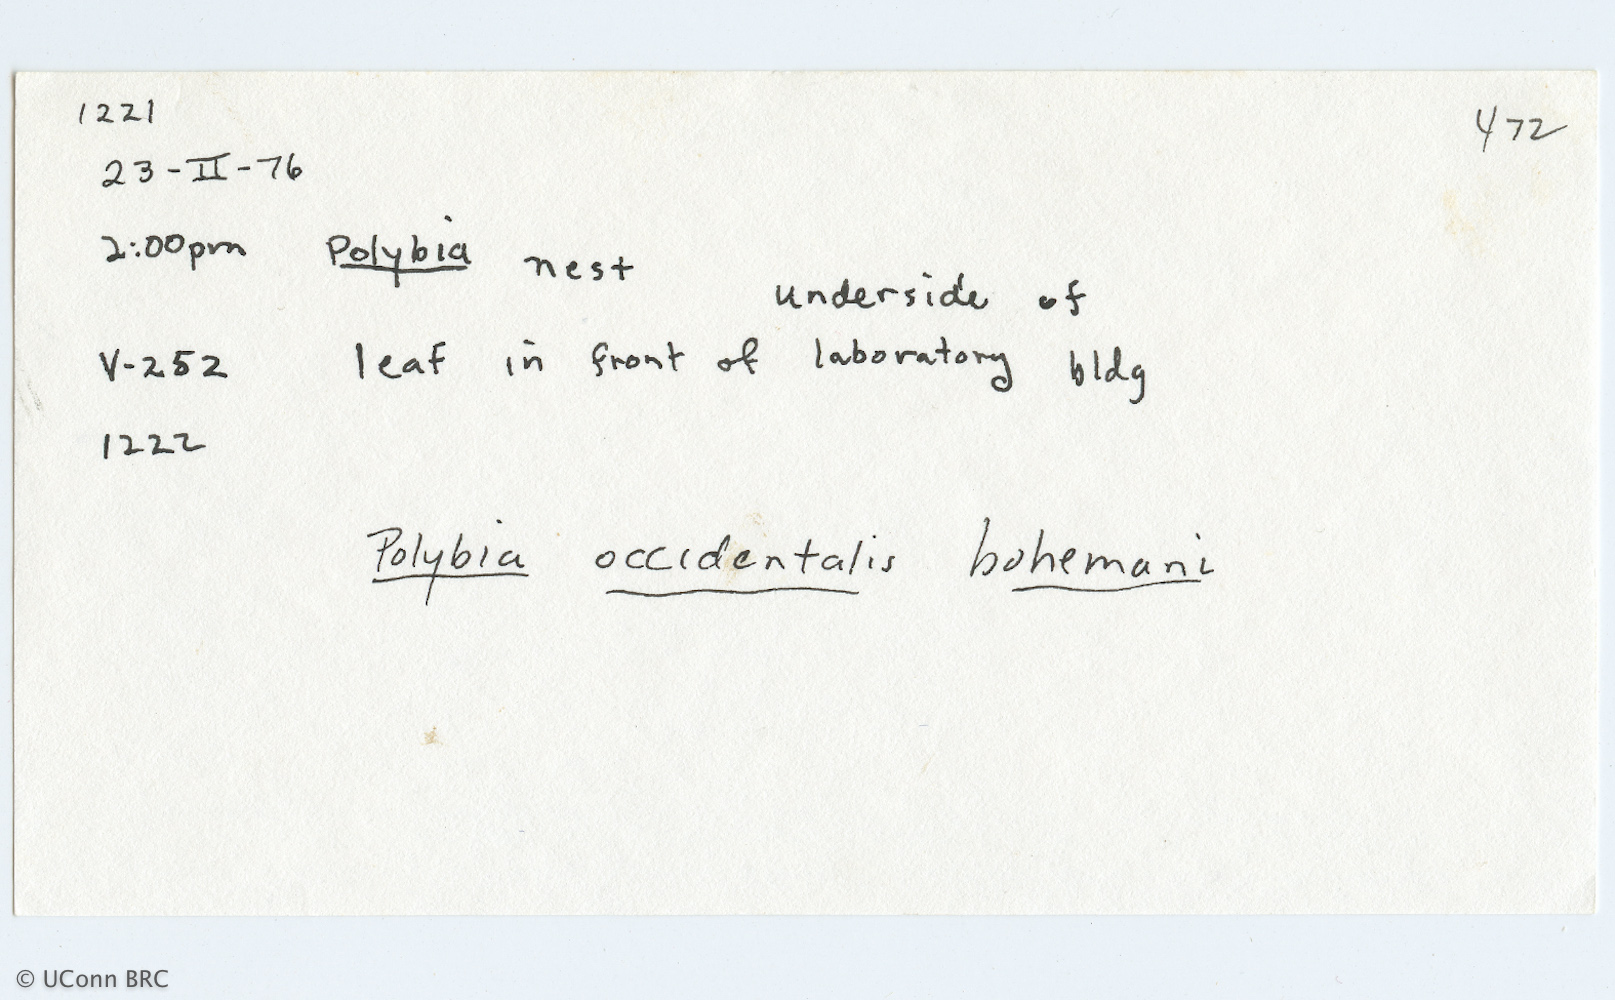 1221
472
23-II-76
2:00pm Polybia nest underside of
V-252 leaf in front of laboratory bldg
1222
Polybia occidentalis bohemani
© UConn BRC